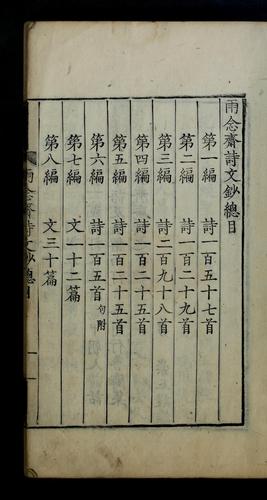 雨念齋詩文鈔總目
第一編 詩一百五十七首
第二編 詩一百二十九首
第三編 詩二百九十八首
第四編 詩一百二十五首
第五編 詩一百二十五首
第六編 詩一百五首 句附
第七編 文一十二篇
第八編 文三十篇
雨念齋詩文鈔總目 一